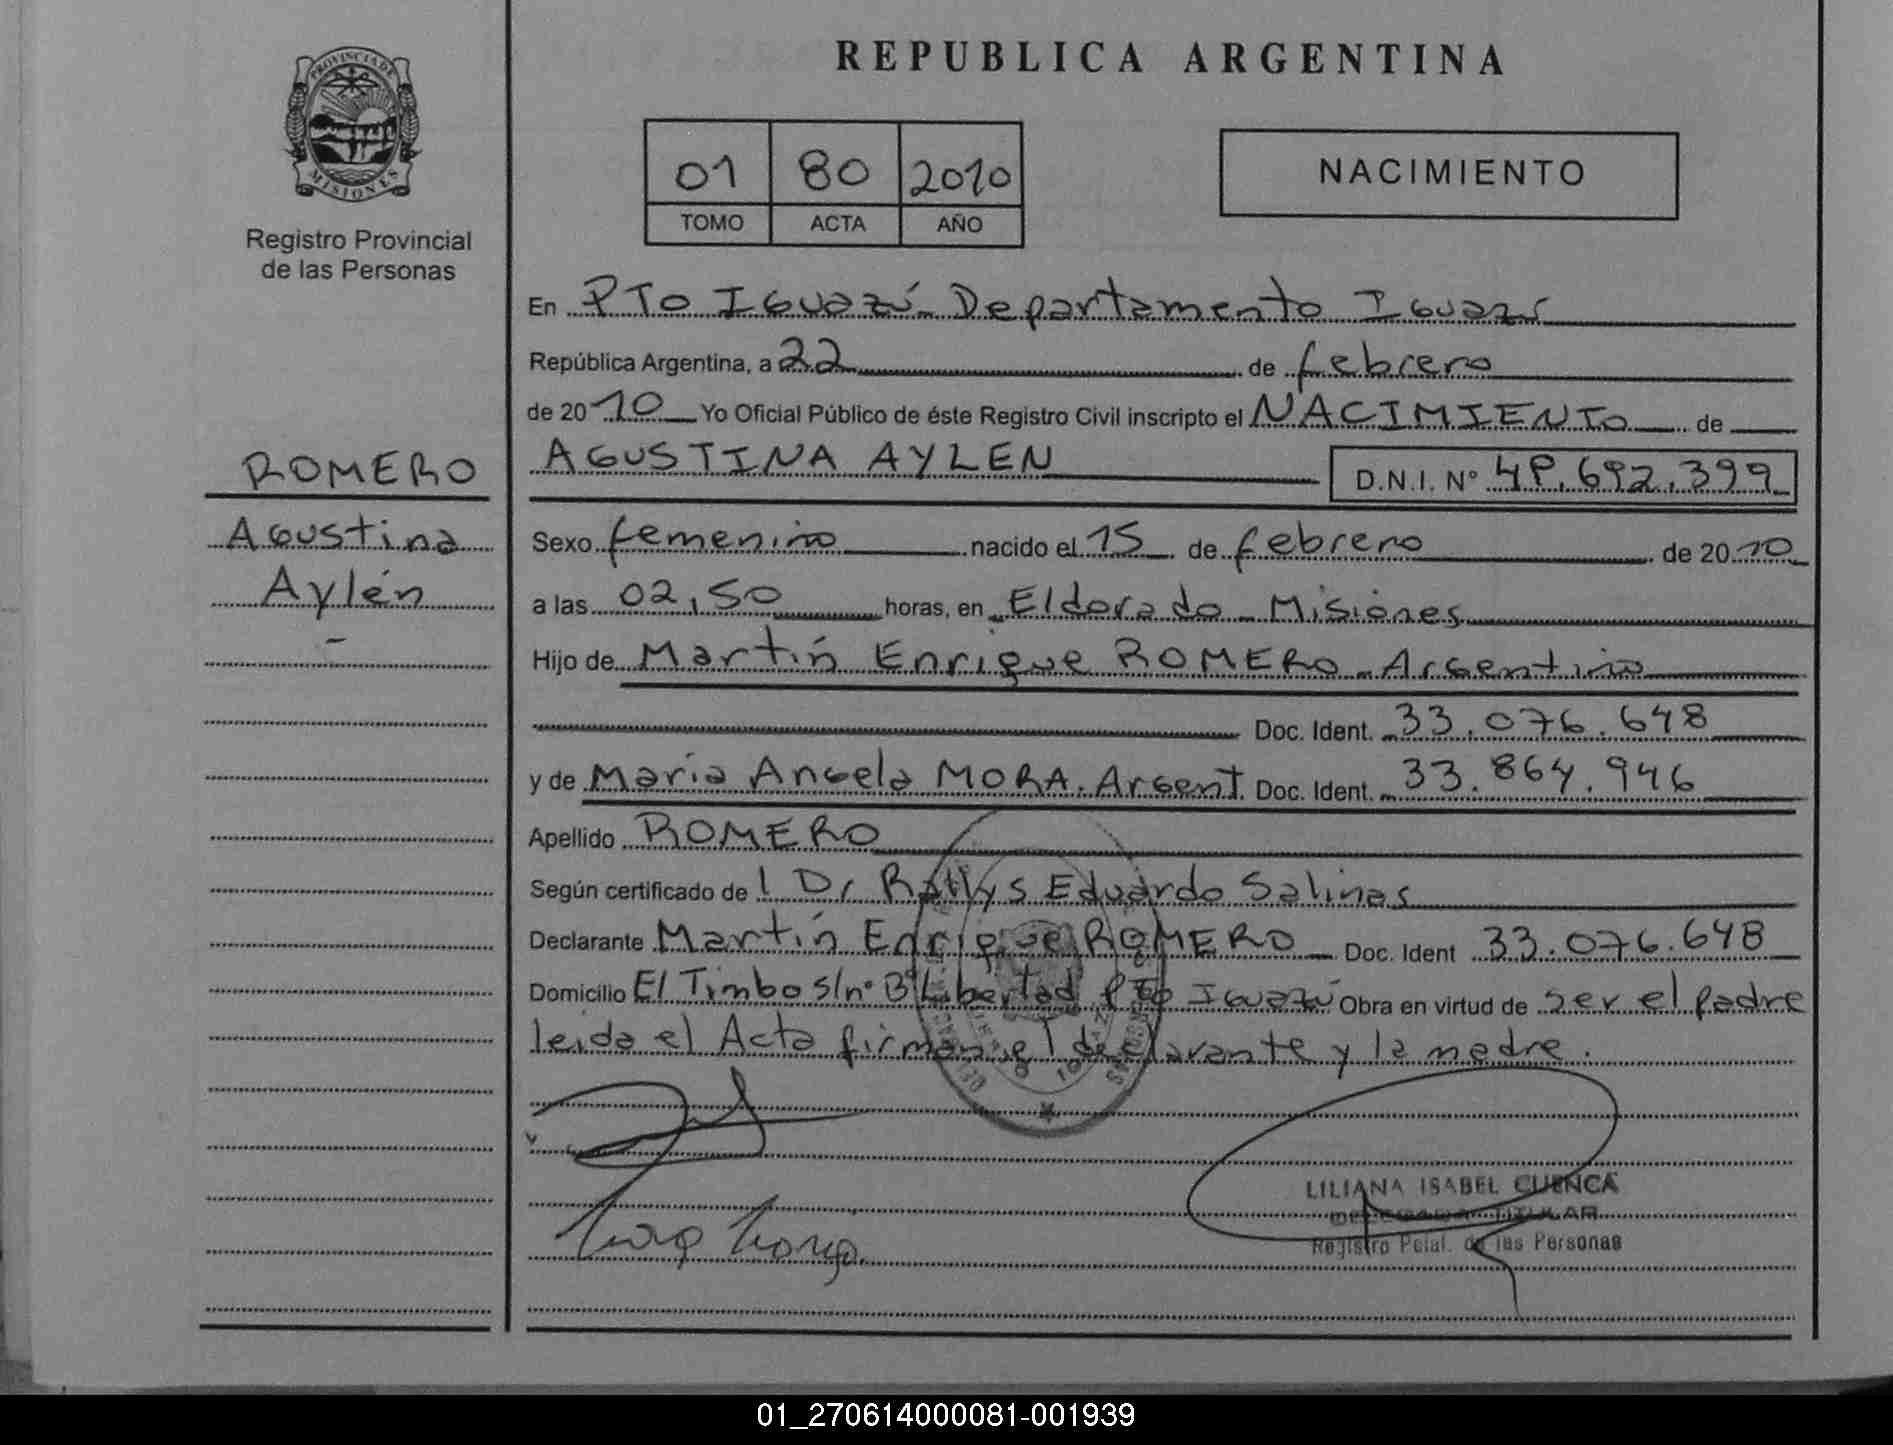 PROVINCIA DE
MISIONES
Registro Provincial
de las Personas
ROMERO
Agustina
Aylén
-
REPUBLICA ARGENTINA
01 80 2010
TOMO ACTA AÑO
NACIMIENTO
En PTo Iguazú - Departamento Iguazú
República Argentina, a 22 de febrero
de 20 10 Yo Oficial Público de éste Registro Civil inscripto el NACIMIENTO de
AGUSTINA AYLEN D.N.I. Nº 49.692.399
Sexo femenino nacido el 15 de febrero de 20 10
a las 02,50 horas, en Eldorado - Misiones
Hijo de Martín Enrique ROMERO - Argentino
Doc. Ident. 33.076.648
y de Maria Angela MORA. Argent. Doc. Ident. 33.864.946
Apellido ROMERO
Según certificado de l Dr Rattys Eduardo Salinas
Declarante Martín Enrique ROMERO Doc. Ident 33.076.648
Domicilio El Timbo s/nº Bº Libertad PTo Iguazú Obra en virtud de ser el padre
leida el Acta firman el declarante y la madre.
LILIANA ISABEL CUENCA
DELEGADA TITULAR
Registro Pcial. de las Personas
01_270614000081-001939